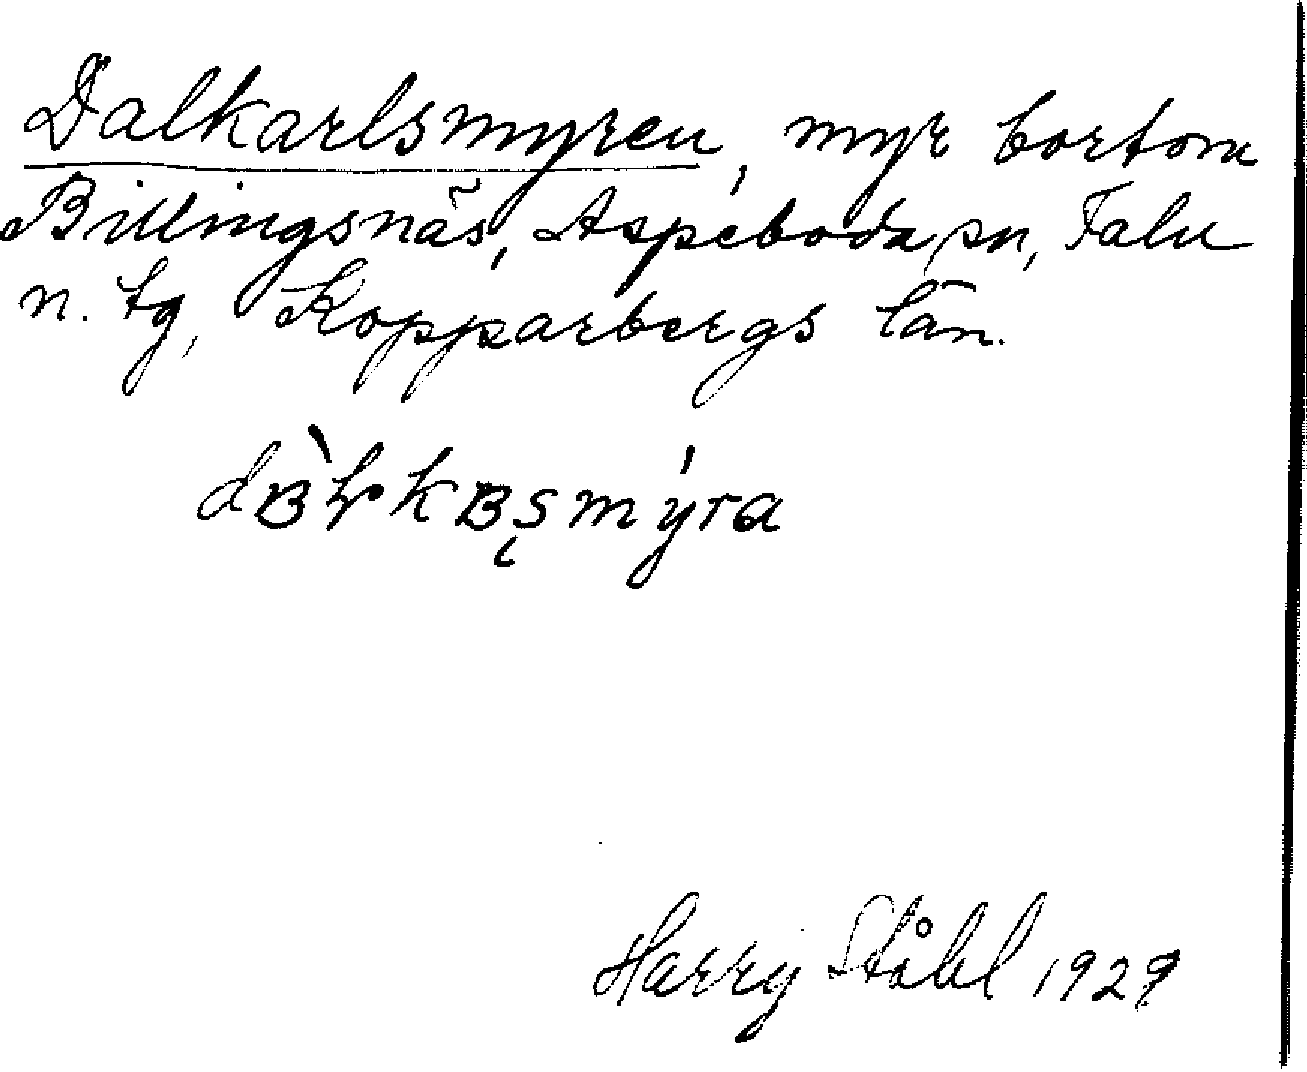 Dalkarlsmyren, myr bortom
Billingsnäs, Aspeboda sn, Falu
n. tg, Kopparbergs län.
Harry Ståhl 1929